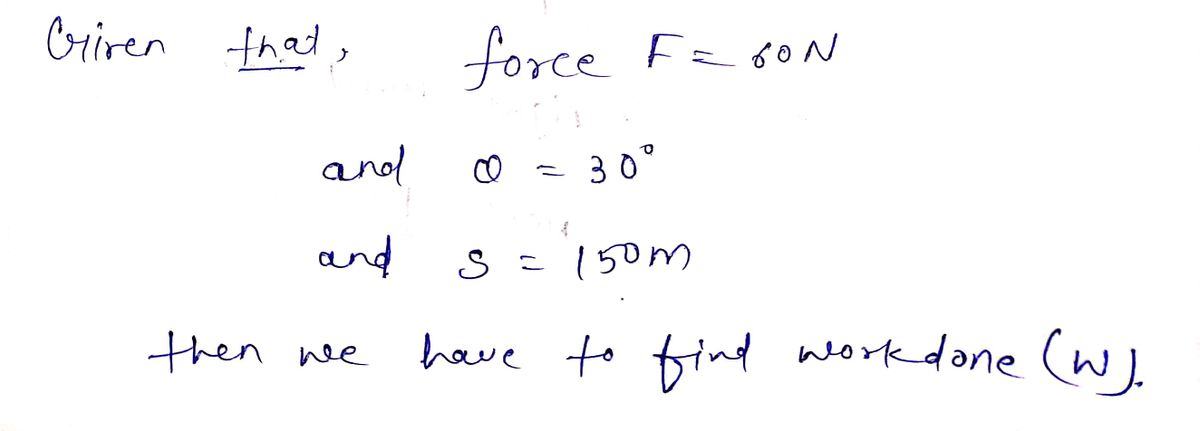 Given that, force F = 60N
and θ = 30°
and S = 150m
then we have to find workdone (W).